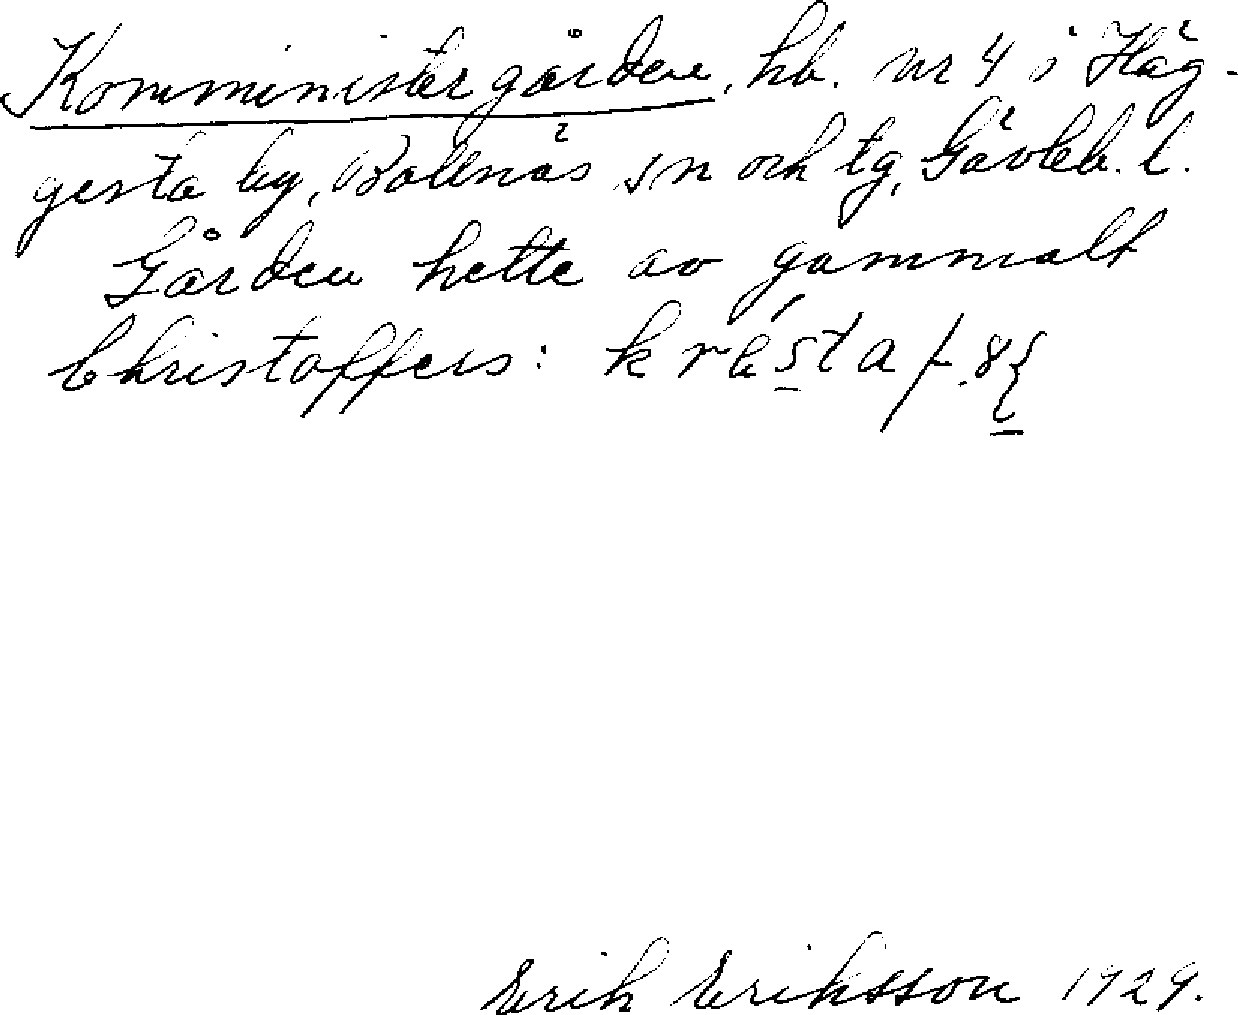 Komministergården, hb. nr 4 i Häg-
gesta by, Bollnäs sn och tg, Gävleb. l.
Gården hette av gammalt
Christoffers:
Erik Eriksson 1929.